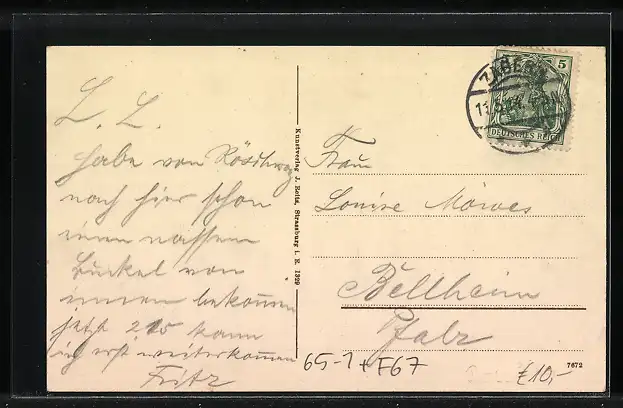 L. L.
habe von
nach hier schon
einen nassen
Buckel von
innen bekommen
jetzt 2 15 kann
ich erst weiterkommen
Fritz
Kunstverlag J. Boltz, Strassburg i. E. 1329
ZABERN
5
DEUTSCHES REICH
Frau
Louise Möwes
Bellheim
Pfalz
65-1 + F67
7672
€10,-